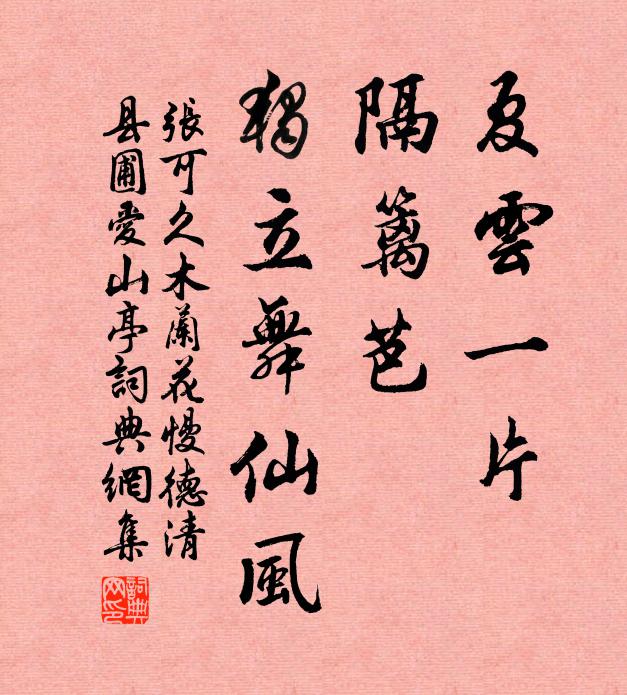 夏雲一片
隔籬芭
獨立舞仙風
張可久木蘭花慢德清
县圃愛山亭詞典網集
詞典
网印